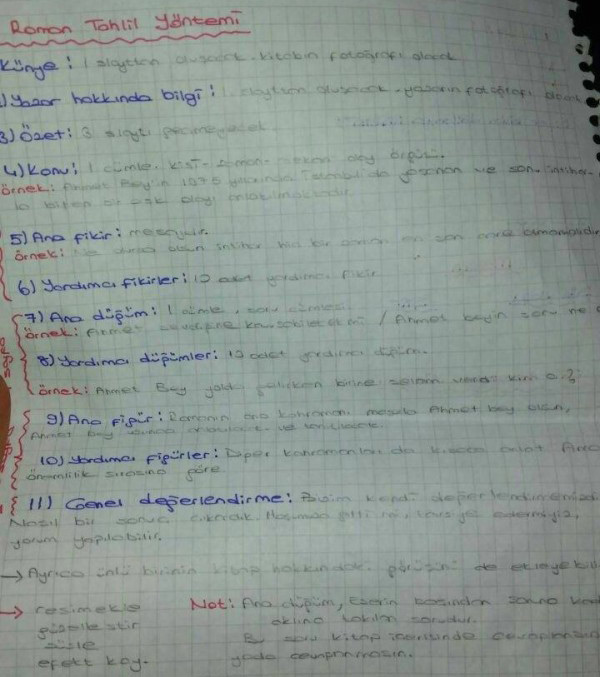 Roman Tahlil Yöntemi
Künye: 1 slayttan oluşacak. kitabın fotoğrafı olacak
Yazar hakkında bilgi: 1 slayttan oluşacak - yazarın fotoğrafı olacak
3) Özet: 3 slaytı geçmeyecek.
4) Konu: 1 cümle. kişi - zaman - mekan olay örgüsü.
örnek: Ahmet Bey'in 1975 yılında İstanbul'da yaşanan ve sonu intihar-
la biten bir aşk olayı anlatılmaktadır.
5) Ana fikir: mesajdır.
örnek: Ne olursa olsun intihar hiç bir zaman en son çare olmamalıdır.
6) Yardımcı fikirler: 10 adet yardımcı fikir
7) Ana düğüm: 1 cümle, soru cümlesi
örnek: Ahmet sevdiğine kavuşabilecek mi / Ahmet beyin sonu ne
8) Yardımcı düğümler: 10 adet yardımcı düğüm.
örnek: Ahmet Bey yolda gelirken birine selam verdi kim o?
9) Ana figür: Romanın ana kahramanı mesela Ahmet bey olsun,
Ahmet bey
10) Yardımcı figürler: Diğer kahramanları da kısaca anlat
önemlilik sırasına göre
11) Genel değerlendirme: Bizim kendi değerlendirmemiz
Nasıl bir sonuç çıkardık. Hoşumuza gitti mi, tavsiye edermiyiz,
yorum yapılabilir.
→ Ayrıca ünlü birinin kitap hakkındaki görüşünü de ekleyebil
→ resimlerle
güzelleştir
süsle
efekt koy.
Not: Ana düğüm, Eserin başından sonra
aklına takılan sorudur.
Bu soru kitap içerisinde cevaplansın
yada cevaplanmasın.